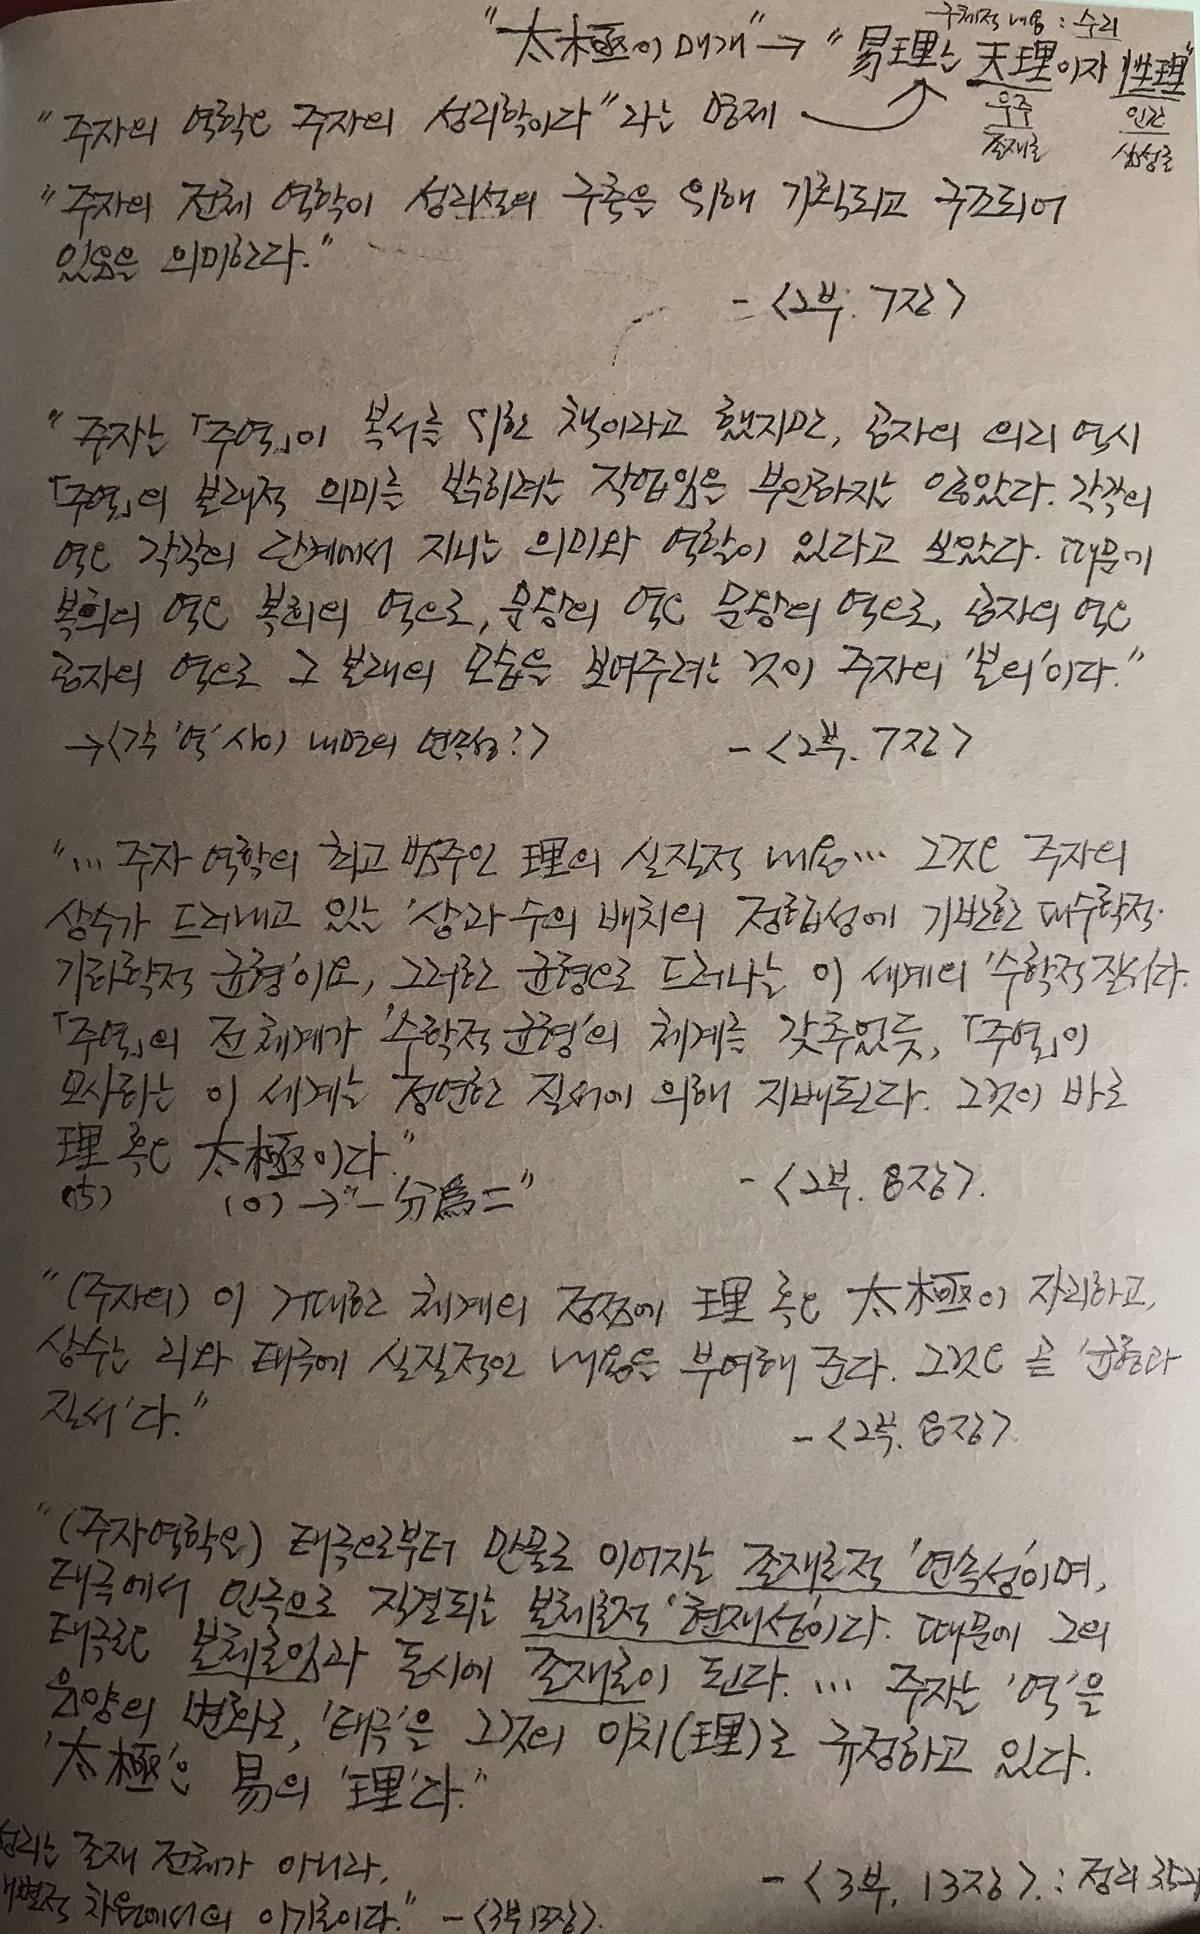 구체적 내용 : 수리
"太極이 매개" → "易理는 天理이자 性理"
우주 인간
존재론 심성론
"주자의 역학은 주자의 성리학이다"라는 명제
"주자의 전체 역학이 성리설의 구축을 위해 기획되고 구조되어
있음을 의미한다."
- <2부. 7장>
"주자는 「주역」이 복서를 위한 책이라고 했지만, 공자의 의리 역시
「주역」의 본래적 의미를 밝히려는 작업임은 부인하지는 않았다. 각각의
역은 각각의 단계에서 지니는 의미와 역할이 있다고 보았다. 때문에
복희의 역은 복희의 역으로, 문왕의 역은 문왕의 역으로, 공자의 역은
공자의 역으로 그 본래의 모습을 보여주려는 것이 주자의 '본의'이다."
→ <각 '역' 사이 내면의 연속성?> - <2부. 7장>
"... 주자 역학의 최고 범주인 理의 실질적 내용... 그것은 주자의
상수가 드러내고 있는 '상과 수의 배치의 정합성에 기반한 대수학적·
기하학적 균형'이요, 그러한 균형으로 드러나는 이 세계의 '수학적 질서'다.
「주역」의 전 체계가 '수학적 균형'의 체계를 갖추었듯, 「주역」이
모사하는 이 세계는 정연한 질서에 의해 지배된다. 그것이 바로
理 혹은 太極이다."
(15) (0) → "一分爲二" - <2부. 8장>.
"(주자의) 이 거대한 체계의 정점에 理 혹은 太極이 자리하고,
상수는 리와 태극에 실질적인 내용을 부여해 준다. 그것은 곧 '균형과
질서'다."
- <2부. 8장>
"(주자역학은) 태극으로부터 만물로 이어지는 존재론적 '연속성'이며,
태극에서 인극으로 직결되는 본체론적 '현재성'이다. 때문에 그의
태극론은 본체론임과 동시에 존재론이 된다. ... 주자는 '역'을
음양의 변화로, '태극'을 그것의 이치(理)로 규정하고 있다.
'太極'은 易의 '理'다."
- <3부, 13장>. : 정리
성리는 존재 전체가 아니라,
개별적 차원에서의 이기론이다." - <3부 13장>.